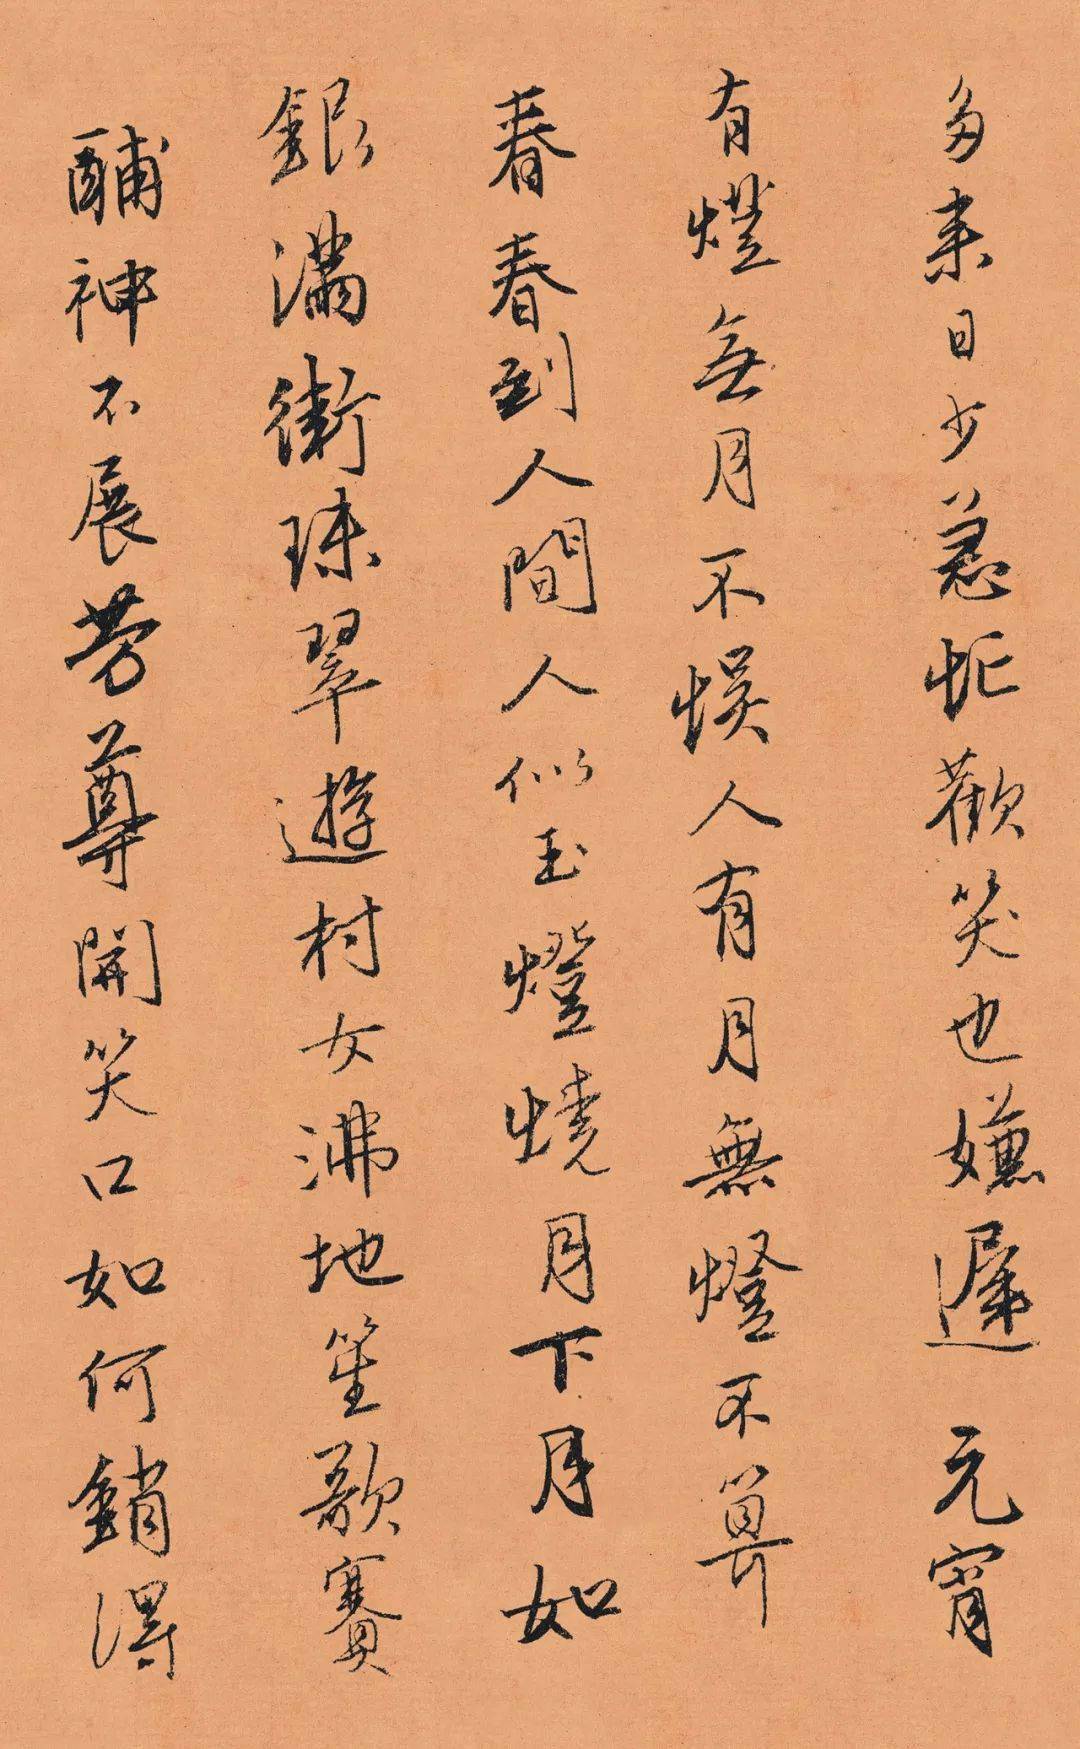 多来日少急忙歡笑也嫌遲 元宵
有燈無月不悞人有月無燈不算
春春到人間人似玉燈燒月下月如
銀滿街珠翠遊村女沸地笙歌賽
酺神不展芳尊開笑口如何銷得